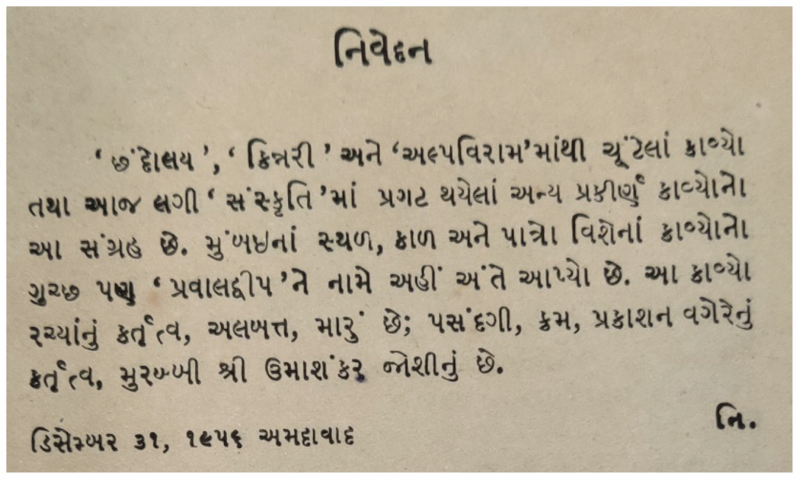 નિવેદન
‘છંદોલય’, ‘કિન્નરી’ અને ‘અલ્પવિરામ’માંથી ચૂંટેલાં કાવ્યો
તથા આજ લગી ‘સંસ્કૃતિ’માં પ્રગટ થયેલાં અન્ય પ્રકીર્ણ કાવ્યોનો
આ સંગ્રહ છે. મુંબઇનાં સ્થળ, કાળ અને પાત્રો વિશેનાં કાવ્યોનો
ગુચ્છ પણ ‘પ્રવાલદ્વીપ’ને નામે અહીં અંતે આપ્યો છે. આ કાવ્યો
રચ્યાંનું કર્તૃત્વ, અલબત્ત, મારું છે; પસંદગી, ક્રમ, પ્રકાશન વગેરેનું
કર્તૃત્વ, મુરબ્બી શ્રી ઉમાશંકર જોશીનું છે.
ડિસેમ્બર ૩૧, ૧૯૫૬ અમદાવાદ
નિ.